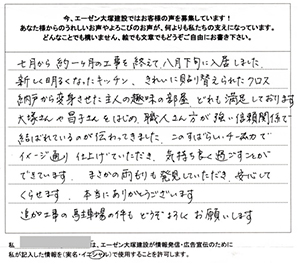 今、エーゼン大塚建設ではお客様の声を募集しています！
あなた様からのうれしいお声やよろこびのお声が、何よりも私たちの支えになっています。
どんなことでも構いません、絵でも文章でもどうぞご自由にお書き下さい。
七月から約一ヶ月の工事を終えて八月下旬に入居しました。
新しく明るくなったキッチン、きれいに貼り替えられたクロス
納戸から変身させた主人の趣味の部屋 どれも満足しております
大塚さんや昌子さんをはじめ、職人さん方が強い信頼関係で
結ばれているのが伝わってきました。このすばらしいチームワークで
イメージ通り仕上げていただき、気持ち良く過ごすことが
できています。まさかの雨もりも発見していただき、安心して
くらせます。本当にありがとうございます
追加工事の駐車場の件もどうぞよろしくお願いします
私　　　　は、エーゼン大塚建設が情報発信・広告宣伝のために
私が記入した情報を（実名・イニシャル）で使用することを許可します。